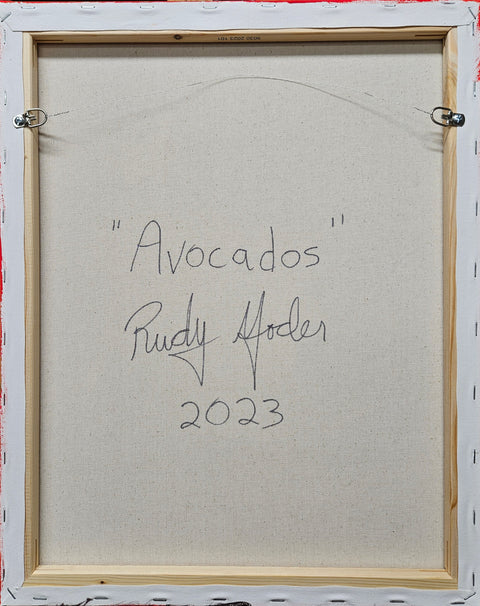 "Avocados"
Rudy Hoder
2023